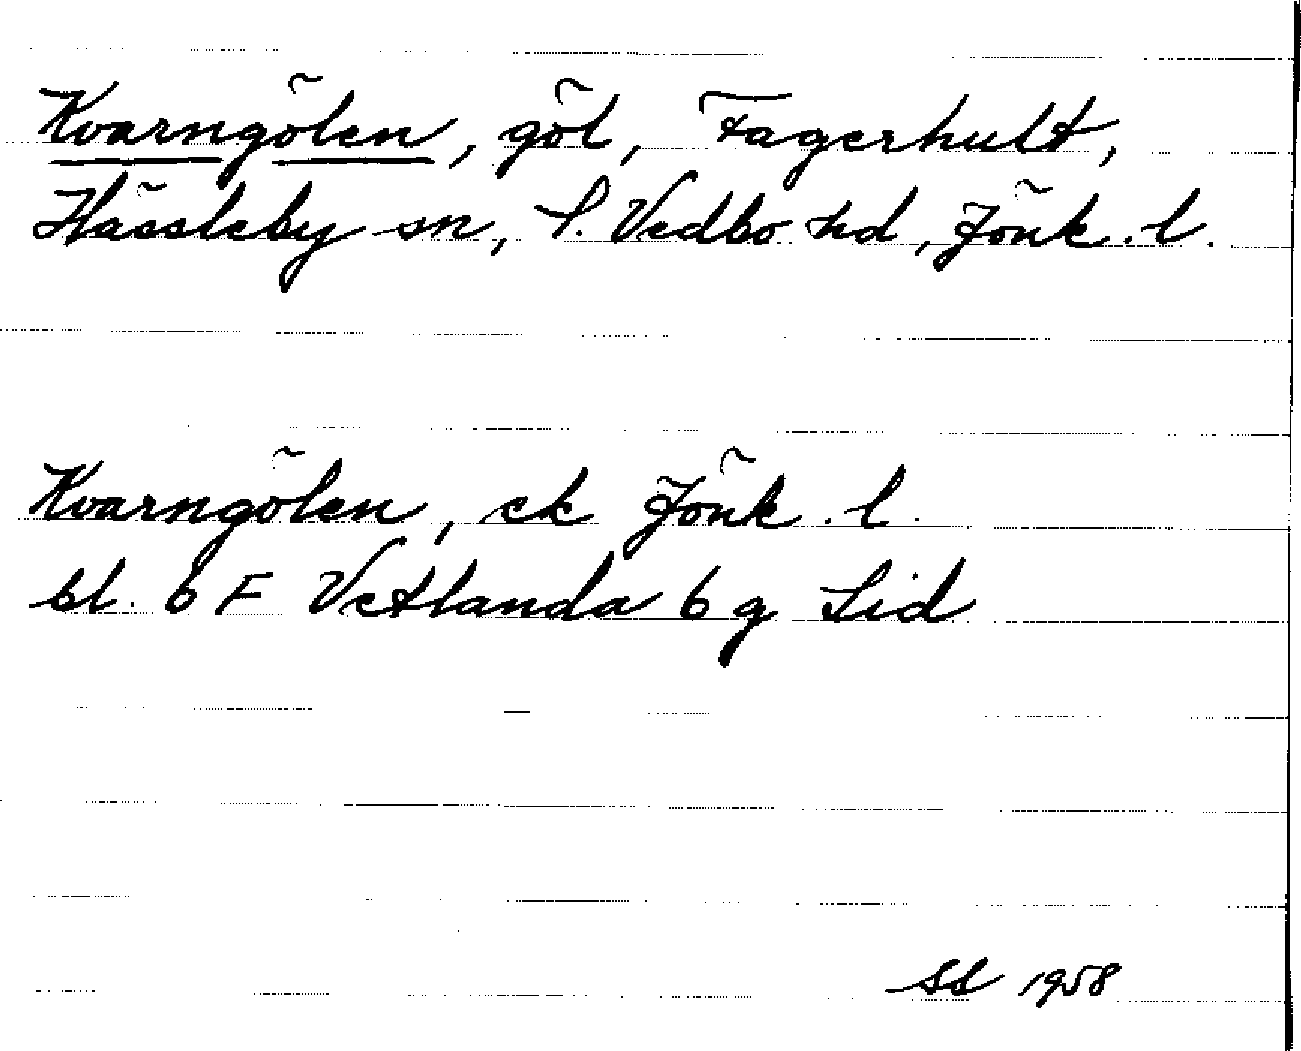 Kvarngölen, göl, Fagerhult,
Hässleby sn, S. Vedbo hd, Jönk. l.
Kvarngölen, ek Jönk. l.
bl. 6 F Vetlanda 6 g Lid
SL 1958